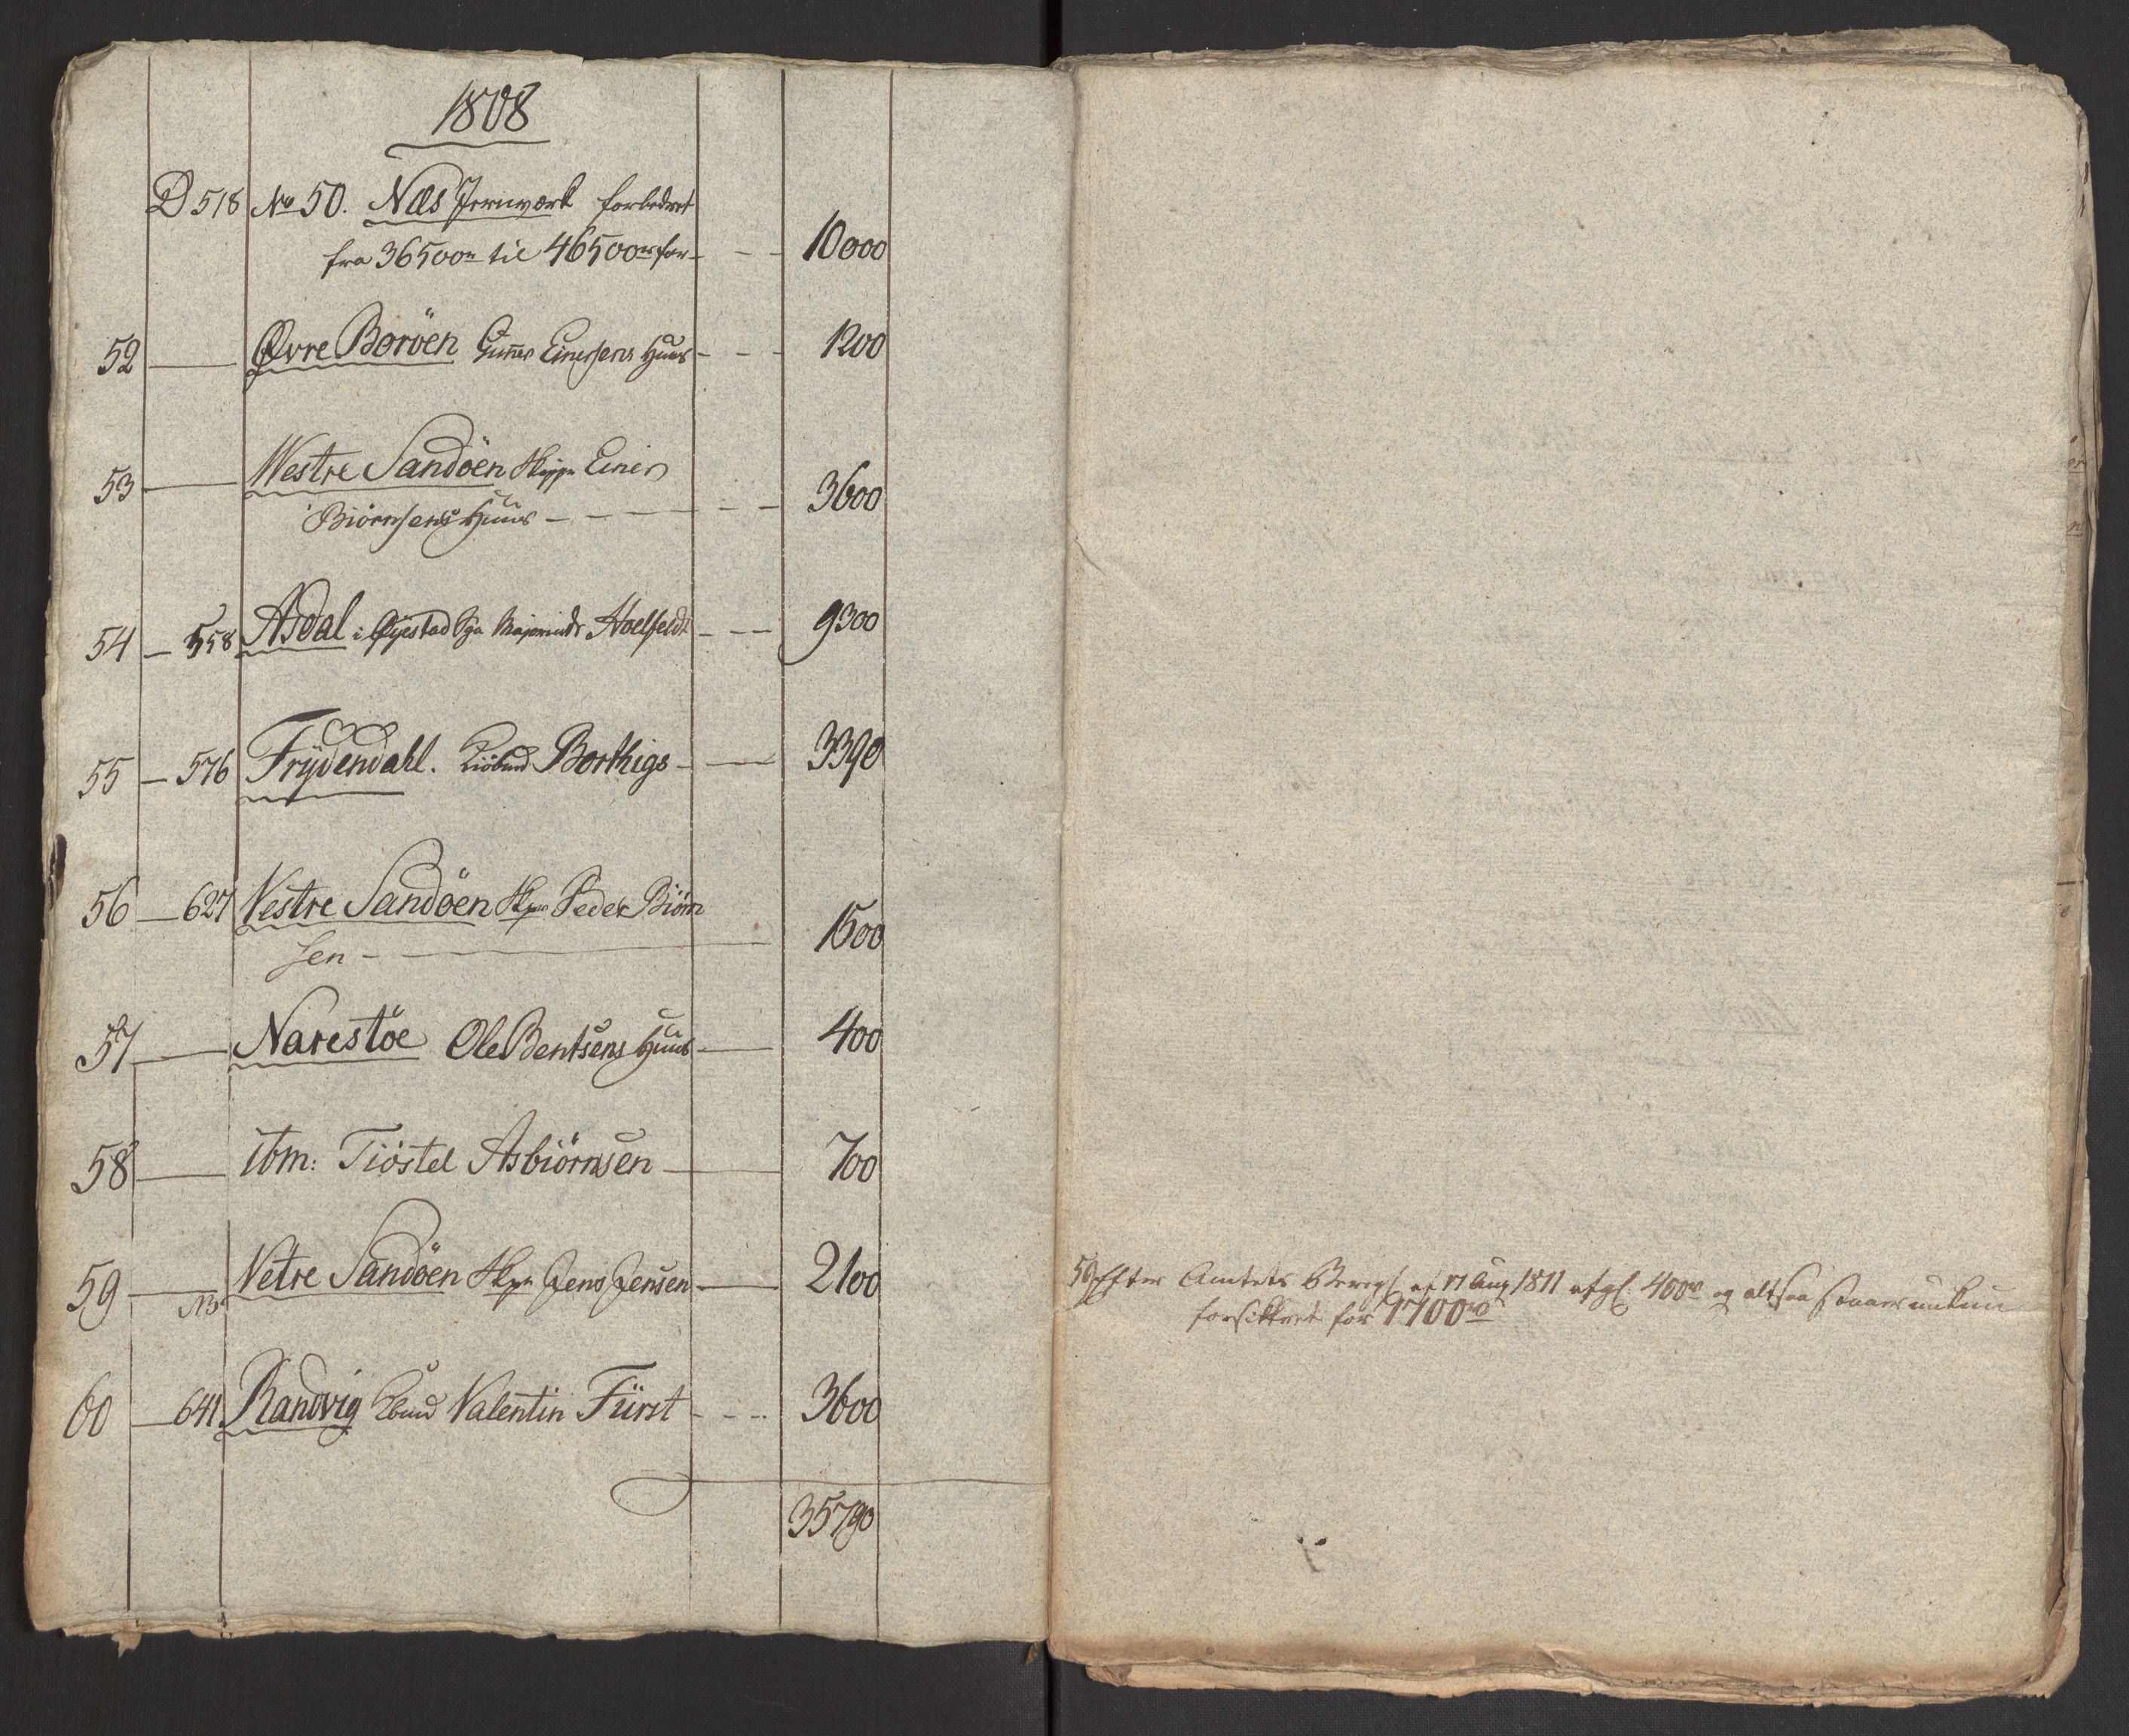 1808
D 518 No 50. Næs Jernværk forbedret
fra 36500 til 46500 for - - 10000
52 — Øvre Boröen Gunner Einersens Huus - - - 1200
53 — Westre Sandöen Skippr Einer
Biörnsens Huus - - - - - 3600
54 — 558 Asdal i Øyestad Majorinde Hoelfeldt - - - 9300
55 — 576 Frÿdendahl. Kiöbmd Borthigs - — 3390
56 — 627 Vestre Sandöen Skpr Peder Biörn
sen - — 1500
57 — Narestöe Ole Bentsens Huus — 400
58 — ibm: Tiöstel Asbiörnsen — 700
59 — NB Vetre Sandöen Skpr Jens Jensen — 2100
60 — 641 Randvig Kbmd Valentin Fürst - - - 3600
35790
59 Efter Amtets af 17 Aug 1811 afgl. 400 og altsaa staaer
forsikkret for 1700